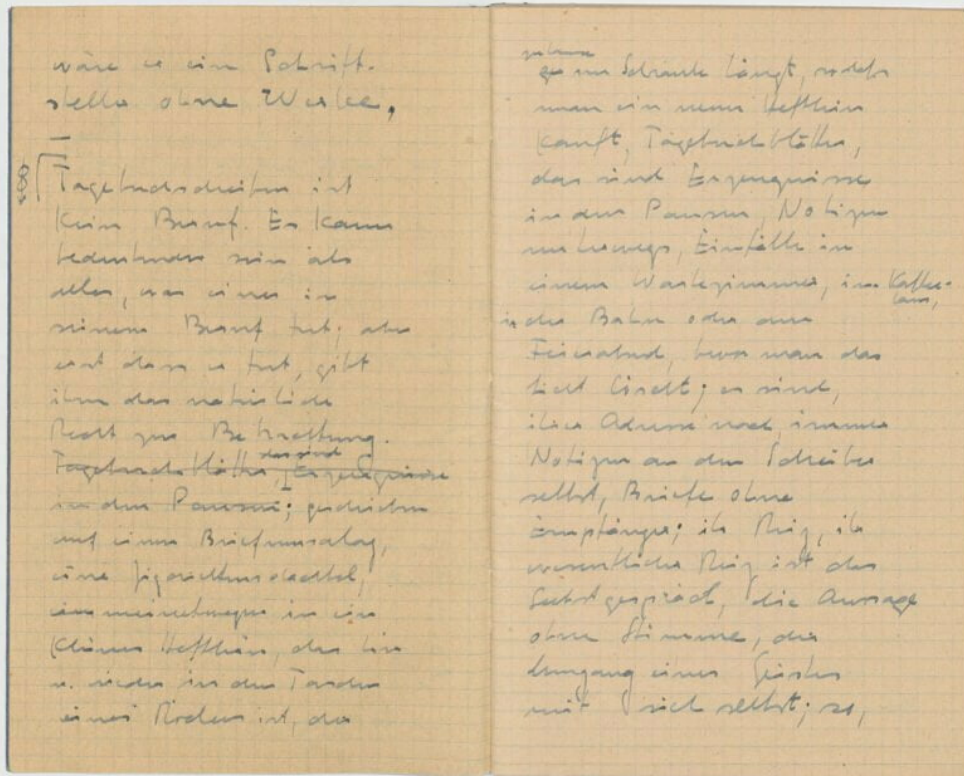 wäre es ein Schrift-
steller ohne Werke,
Tagebuchschreiben ist
kein Beruf. Es kann
bedeutender sein als
alles, was einer in
seinem Beruf tut; aber
erst dass er tut, gibt
ihm das natürliche
Recht zur Betrachtung.
Tagebuchblätter, das sind Erzeugnisse
in den Pausen; geschrieben
auf einen Briefumschlag,
eine Zigarettenschachtel,
meinetwegen in ein
kleines Heftlein, das hin
u. wieder in den Taschen
eines Rockes ist, der
zuhause
im Schranke hängt, sodass
man ein neues Heftlein
kauft, Tagebuchblätter,
das sind Erzeugnisse
in den Pausen, Notizen
unterwegs, Einfälle in
einem Wartezimmer, im Kaffee-
haus,
in der Bahn oder am
Feierabend, bevor man das
Licht löscht; es sind,
ihrer Adresse nach, immer
Notizen an den Schreiber
selbst, Briefe ohne
Empfänger; ihr Reiz, ihr
wesentlicher Reiz ist das
Selbstgespräch, die Aussage
ohne Stimme, der
Umgang eines Geistes
mit sich selbst; so,